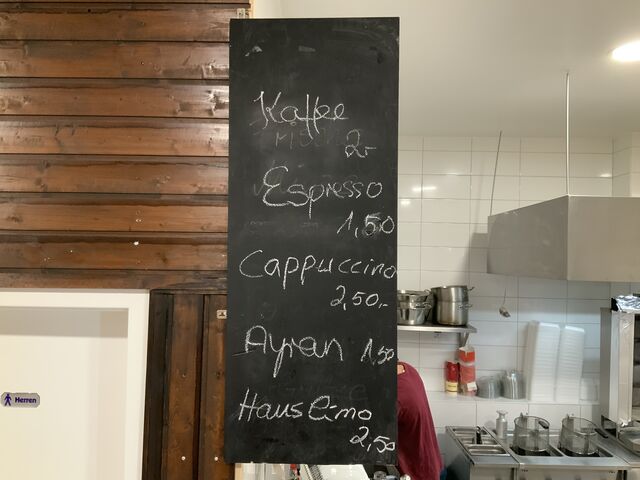 Kaffee
2,-
Espresso
1,50
Cappuccino
2,50,-
Ayran 1,50
Hauslimo
2,50
Herren